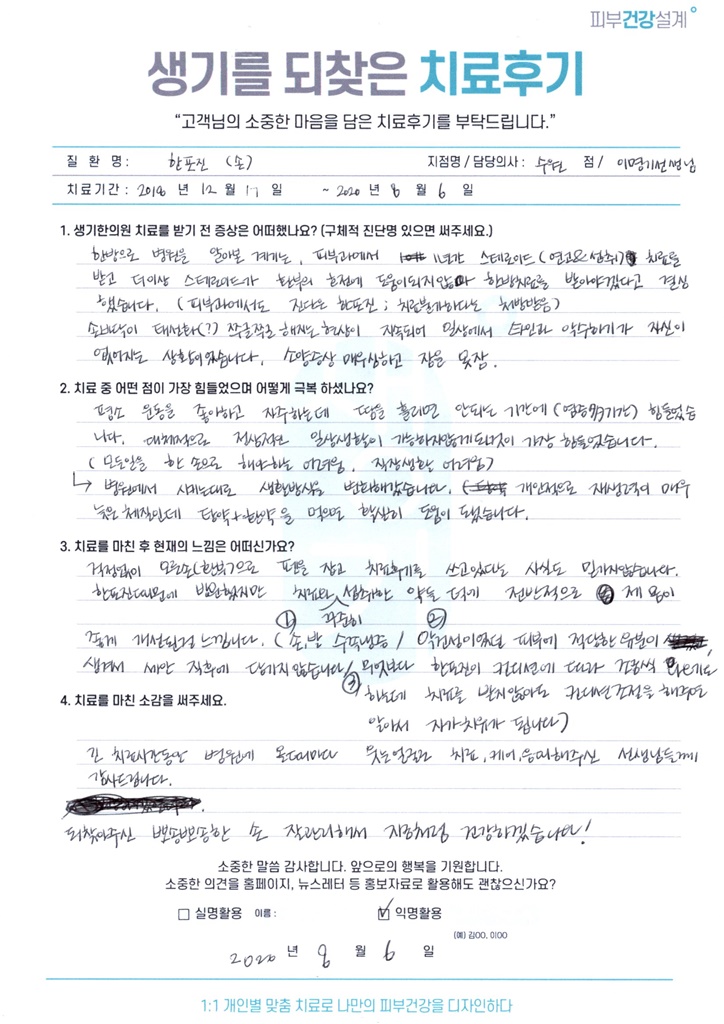 피부건강설계
생기를 되찾은 치료후기
“고객님의 소중한 마음을 담은 치료후기를 부탁드립니다.”
질 환 명 : 한포진 (손) 지점명 / 담당의사 : 수원 점 / 이명기선생님
치료기간 : 2018 년 12 월 17 일 ~ 2020 년 8 월 6 일
1. 생기한의원 치료를 받기 전 증상은 어떠했나요? (구체적 진단명 있으면 써주세요.)
한방으로 병원을 알아본 계기는, 피부과에서 1년간 스테로이드 (연고&섭취) 치료를
받고 더이상 스테로이드가 환부의 호전에 도움이되지않아 한방치료를 받아야겠다고 결심
했습니다. (피부과에서도 진단은 한포진; 치료불가하다는 처방받음)
손바닥이 태선화(?) 쭈글쭈글 해지는 현상이 지속되어 일상에서 타인과 악수하기가 자신이
없어지는 상황이었습니다. 소양증상 매우심하고 잠을 못잠.
2. 치료 중 어떤 점이 가장 힘들었으며 어떻게 극복 하셨나요?
평소 운동을 좋아하고 자주하는데 땀을 흘리면 안되는 기간에 (염증 기간) 힘들었습
니다. 대체적으로 정상적인 일상생활이 가능하지않게되는것이 가장 힘들었습니다.
(모든일을 한 손으로 해야하는 어려움, 직장생활 어려움)
↳ 병원에서 시키는대로 생활방식을 변화해갔습니다. 개인적으로 재생력이 매우
늦은 체질인데 탕약+환약을 먹으며 확실히 도움이 됐습니다.
3. 치료를 마친 후 현재의 느낌은 어떠신가요?
걱정없이 오른손(환부)으로 펜을 잡고 치료후기를 쓰고있다는 사실도 믿기지않습니다.
한포진때문에 방문했지만 치료와 꾸준히 섭취한 약들 덕에 전반적으로 제 몸이
좋게 개선된걸 느낍니다. (① 손,발 수족냉증 / ② 악건성이였던 피부에 적당한 유분이
생겨서 세안 직후에 당기지 않습니다 / ③ 무엇보다 한포진이 컨디션에 따라 조금씩 나오기도
하는데 치료를 받지않아도 컨디션조절을 해주면
알아서 자가치유가 됩니다)
4. 치료를 마친 소감을 써주세요.
긴 치료시간동안 병원에 올때마다 웃는얼굴로 치료, 케어, 응대해주신 선생님들께
감사드립니다.
되찾아주신 뽀송뽀송한 손 잘관리해서 지금처럼 건강하겠습니다!
소중한 말씀 감사합니다. 앞으로의 행복을 기원합니다.
소중한 의견을 홈페이지, 뉴스레터 등 홍보자료로 활용해도 괜찮으신가요?
□ 실명활용 이름 : ☑ 익명활용
(예) 김OO, 이OO
2020 년 8 월 6 일
1:1 개인별 맞춤 치료로 나만의 피부건강을 디자인하다